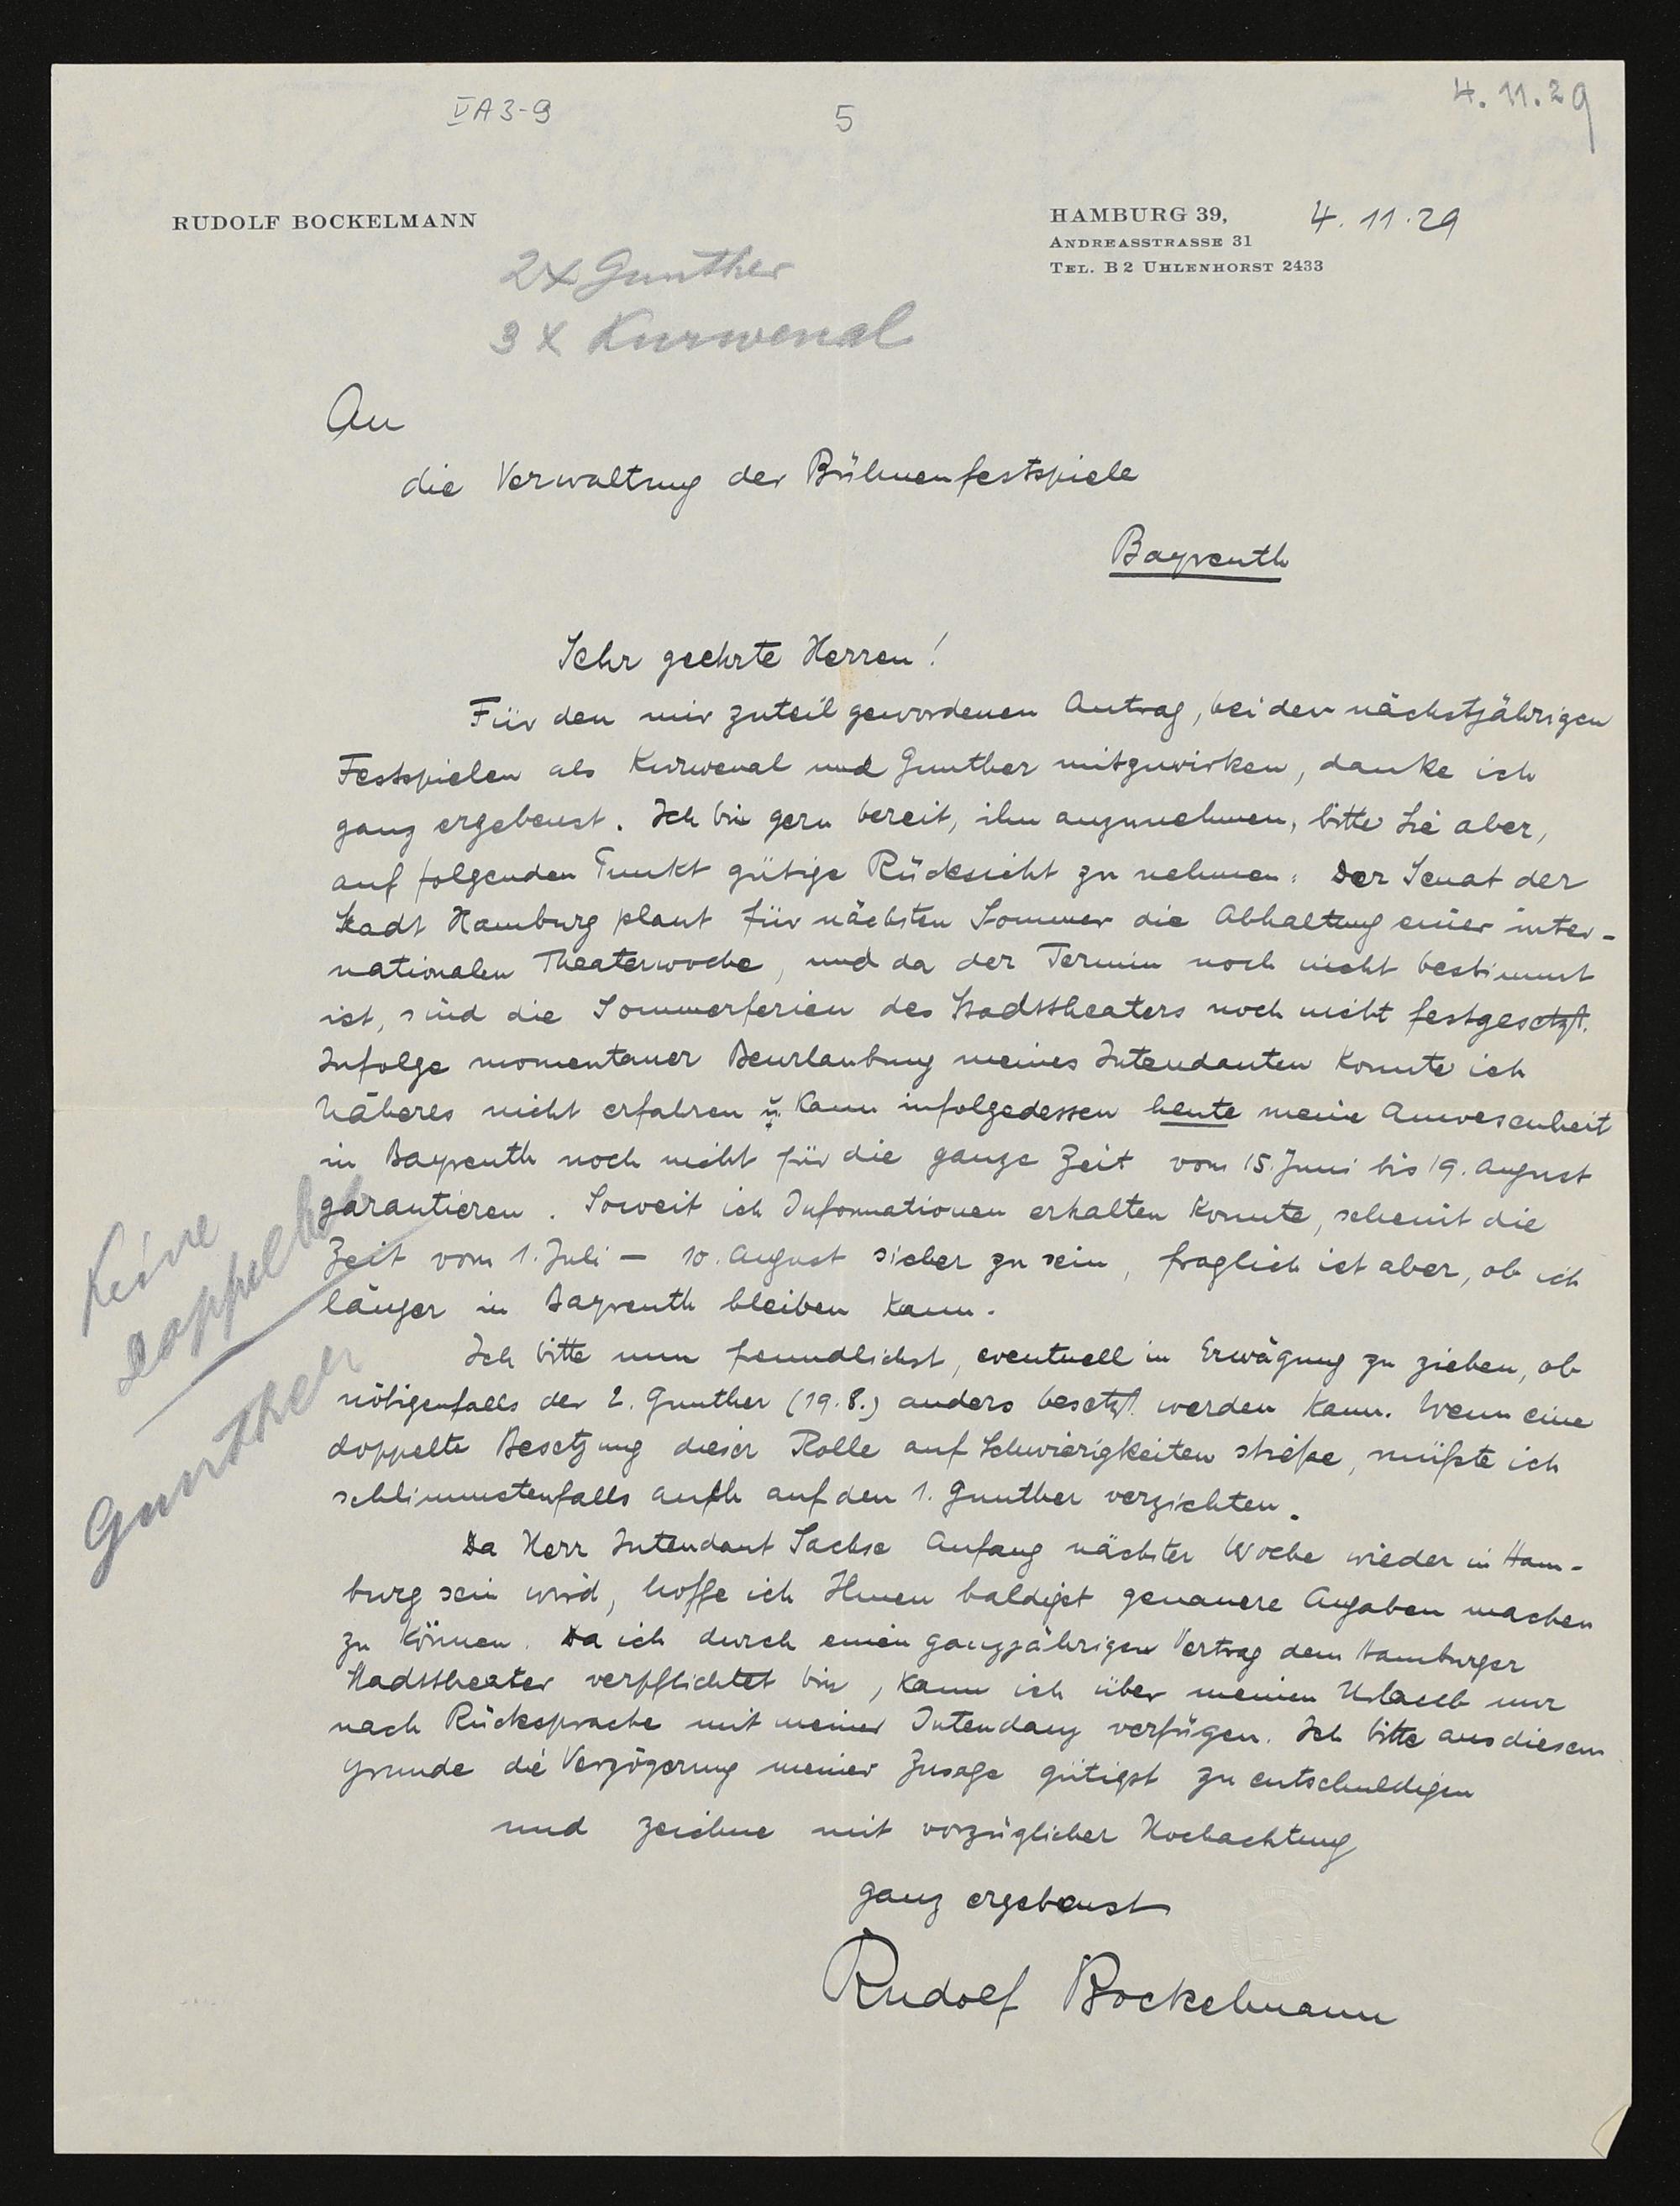 VA3-9
5
4.11.29
RUDOLF BOCKELMANN
HAMBURG 39,
ANDREASSTRASSE 31
TEL. B2 UHLENHORST 2433
4.11.29
2x Gunther
3x Kurwenal
An
die Verwaltung der Bühnenfestspiele
Bayreuth
Sehr geehrte Herren!
Für den mir zuteil gewordenen Antrag, bei den nächstjährigen
Festspielen als Kurwenal und Gunther mitzuwirken, danke ich
ganz ergebenst. Ich bin gern bereit, ihn anzunehmen, bitte Sie aber,
auf folgenden Punkt gütige Rücksicht zu nehmen: Der Senat der
Stadt Hamburg plant für nächsten Sommer die Abhaltung einer inter-
nationalen Theaterwoche, und da der Termin noch nicht bestimmt
ist, sind die Sommerferien des Stadttheaters noch nicht festgesetzt.
Infolge momentaner Beurlaubung meines Intendanten konnte ich
Näheres nicht erfahren u. kann infolgedessen heute meine Anwesenheit
in Bayreuth noch nicht für die ganze Zeit vom 15. Juni bis 19. August
garantieren. Soweit ich Informationen erhalten konnte, scheint die
Zeit vom 1. Juli – 10. August sicher zu sein, fraglich ist aber, ob ich
länger in Bayreuth bleiben kann.
Keine
Gunther
Ich bitte nun freundlichst, eventuell in Erwägung zu ziehen, ob
nötigenfalls der 2. Gunther (19.8.) anders besetzt werden kann. Wenn eine
doppelte Besetzung dieser Rolle auf Schwierigkeiten stieße, müßte ich
schlimmstenfalls auch auf den 1. Gunther verzichten.
Da Herr Intendant Sachse Anfang nächster Woche wieder in Ham-
burg sein wird, hoffe ich Ihnen baldigst genauere Angaben machen
zu können. Da ich durch einen ganzjährigen Vertrag dem Hamburger
Stadttheater verpflichtet bin, kann ich über meinen Urlaub nur
nach Rücksprache mit meiner Intendanz verfügen. Ich bitte aus diesem
Grunde die Verzögerung meiner Zusage gütigst zu entschuldigen
und zeichne mit vorzüglicher Hochachtung
ganz ergebenst
Rudolf Bockelmann